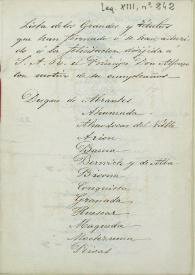 Leg. XIII, nº 242
Lista de los Grandes y Titulos
que han firmado ó se han adherido
á la felicitacion dirigida a
S. A. R. el Principe Don Alfonso
con motivo de su cumpleaños.
Duques de Abrantes
Ahumada
Almodovar del Valle
Arion
Baena
Berwick y de Alba
Bivona
Conquista
Granada
Huescar
Maqueda
Moctezuma
Rivas